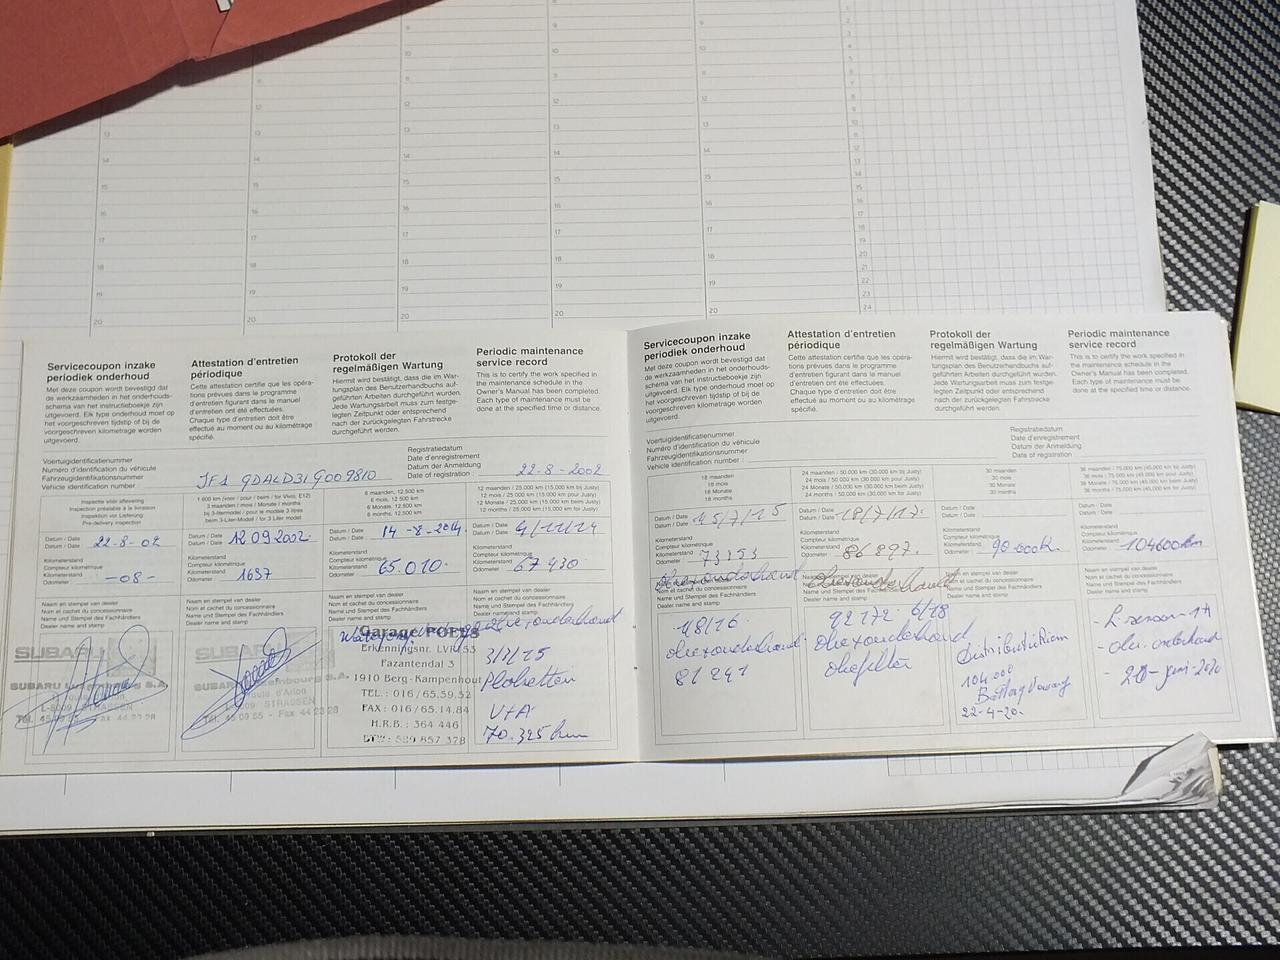 Servicecoupon inzake
periodiek onderhoud
Met deze coupon wordt bevestigd dat
de werkzaamheden in het onderhouds-
schema van het instructieboekje zijn
uitgevoerd. Elk type onderhoud moet op
het voorgeschreven tijdstip of bij de
voorgeschreven kilometrage worden
uitgevoerd.
Attestation d'entretien
périodique
Cette attestation certifie que les opéra-
tions prévues dans le programme
d'entretien figurant dans le manuel
d'entretien ont été effectuées.
Chaque type d'entretien doit être
effectué au moment ou au kilométrage
spécifié.
Protokoll der
regelmäßigen Wartung
Hiermit wird bestätigt, daß die im War-
tungsplan des Benutzerhandbuchs auf-
geführten Arbeiten durchgeführt wurden.
Jede Wartungsarbeit muss zum festge-
legten Zeitpunkt oder entsprechend
nach der zurückgelegten Fahrstrecke
durchgeführt werden.
Periodic maintenance
service record
This is to certify the work specified in
the maintenance schedule in the
Owner's Manual has been completed.
Each type of maintenance must be
done at the specified time or distance.
Voertuigidentificatienummer
Numéro d'identification du véhicule
Fahrzeugidentifikationsnummer
Vehicle identification number
JF1 GDALD31G009810
Registratiedatum
Date d'enregistrement
Datum der Anmeldung
Date of registration
22-8-2002
Inspectie vóór aflevering
Inspection préalable à la livraison
Inspektion vor Lieferung
Pre-delivery inspection
Datum / Date
Datum / Date
22-8-02
Kilometerstand
Compteur kilométrique
Kilometerstand
Odometer
-08-
Naam en stempel van dealer
Nom et cachet du concessionnaire
Name und Stempel des Fachhändlers
Dealer name and stamp
SUBARU
L-8009 STRASSEN
1 600 km (voor / pour / beim / for Vivio, E12)
3 maanden / mois / Monate / months
bij 3-litermodel / pour le modèle 3 litres
beim 3-Liter-Model / for 3 Liter model
Datum / Date
Datum / Date
12 09 2002
Kilometerstand
Compteur kilométrique
Kilometerstand
Odometer
1637
Naam en stempel van dealer
Nom et cachet du concessionnaire
Name und Stempel des Fachhändlers
Dealer name and stamp
SUBARU
Route d'Arlon
STRASSEN
6 maanden, 12.500 km
6 mois, 12.500 km
6 Monate, 12.500 km
6 months, 12.500 km
Datum / Date
Datum / Date
14-8-2014
Kilometerstand
Compteur kilométrique
Kilometerstand
Odometer
65.010
Naam en stempel van dealer
Nom et cachet du concessionnaire
Name und Stempel des Fachhändlers
Dealer name and stamp
Garage POELS
Erkenningsnr.
Fazantendal 3
1910 Berg-Kampenhout
TEL.: 016/65.59.52
FAX : 016/65.14.84
H.R.B. : 364 446
12 maanden / 25.000 km (15.000 km pour Justy)
12 mois / 25.000 km (15.000 km pour Justy)
12 Monate / 25.000 km (15.000 km beim Justy)
12 months / 25.000 km (15.000 km for Justy)
Datum / Date
Datum / Date
Kilometerstand
Compteur kilométrique
Kilometerstand
Odometer
67 430
Naam en stempel van dealer
Nom et cachet du concessionnaire
Name und Stempel des Fachhändlers
Dealer name and stamp
Plaketten
70.325 km
Servicecoupon inzake
periodiek onderhoud
Met deze coupon wordt bevestigd dat
de werkzaamheden in het onderhouds-
schema van het instructieboekje zijn
uitgevoerd. Elk type onderhoud moet op
het voorgeschreven tijdstip of bij de
voorgeschreven kilometrage worden
uitgevoerd.
Attestation d'entretien
périodique
Cette attestation certifie que les opéra-
tions prévues dans le programme
d'entretien figurant dans le manuel
d'entretien ont été effectuées.
Chaque type d'entretien doit être
effectué au moment ou au kilométrage
spécifié.
Protokoll der
regelmäßigen Wartung
Hiermit wird bestätigt, daß die im War-
tungsplan des Benutzerhandbuchs auf-
geführten Arbeiten durchgeführt wurden.
Jede Wartungsarbeit muss zum festge-
legten Zeitpunkt oder entsprechend
nach der zurückgelegten Fahrstrecke
durchgeführt werden.
Periodic maintenance
service record
This is to certify the work specified in
the maintenance schedule in the
Owner's Manual has been completed.
Each type of maintenance must be
done at the specified time or distance.
Voertuigidentificatienummer
Numéro d'identification du véhicule
Fahrzeugidentifikationsnummer
Vehicle identification number
Registratiedatum
Date d'enregistrement
Datum der Anmeldung
Date of registration
18 maanden
18 mois
18 Monate
18 months
Datum / Date
Datum / Date
15/7/15
Kilometerstand
Compteur kilométrique
Kilometerstand
Odometer
Naam en stempel van dealer
Nom et cachet du concessionnaire
Name und Stempel des Fachhändlers
Dealer name and stamp
81 241
24 maanden / 50.000 km (30.000 km bij Justy)
24 mois / 50.000 km (30.000 km pour Justy)
24 Monate / 50.000 km (30.000 km beim Justy)
24 months / 50.000 km (30.000 km for Justy)
Datum / Date
Datum / Date
18/7/17
Kilometerstand
Compteur kilométrique
Kilometerstand
Odometer
86 897
92172 6/18
oliefilter
30 maanden
30 mois
30 Monate
30 months
Datum / Date
Datum / Date
Kilometerstand
Compteur kilométrique
Kilometerstand
Odometer
90 000
Distributieriem
104.000
22-4-20
36 maanden / 75.000 km (45.000 km bij Justy)
36 mois / 75.000 km (45.000 km pour Justy)
36 Monate / 75.000 km (45.000 km beim Justy)
36 months / 75.000 km (45.000 km for Justy)
Datum / Date
Datum / Date
Kilometerstand
Compteur kilométrique
Kilometerstand
Odometer
104600 km
Naam en stempel van dealer
Nom et cachet du concessionnaire
Name und Stempel des Fachhändlers
Dealer name and stamp
- olie onderhoud
juni 2020